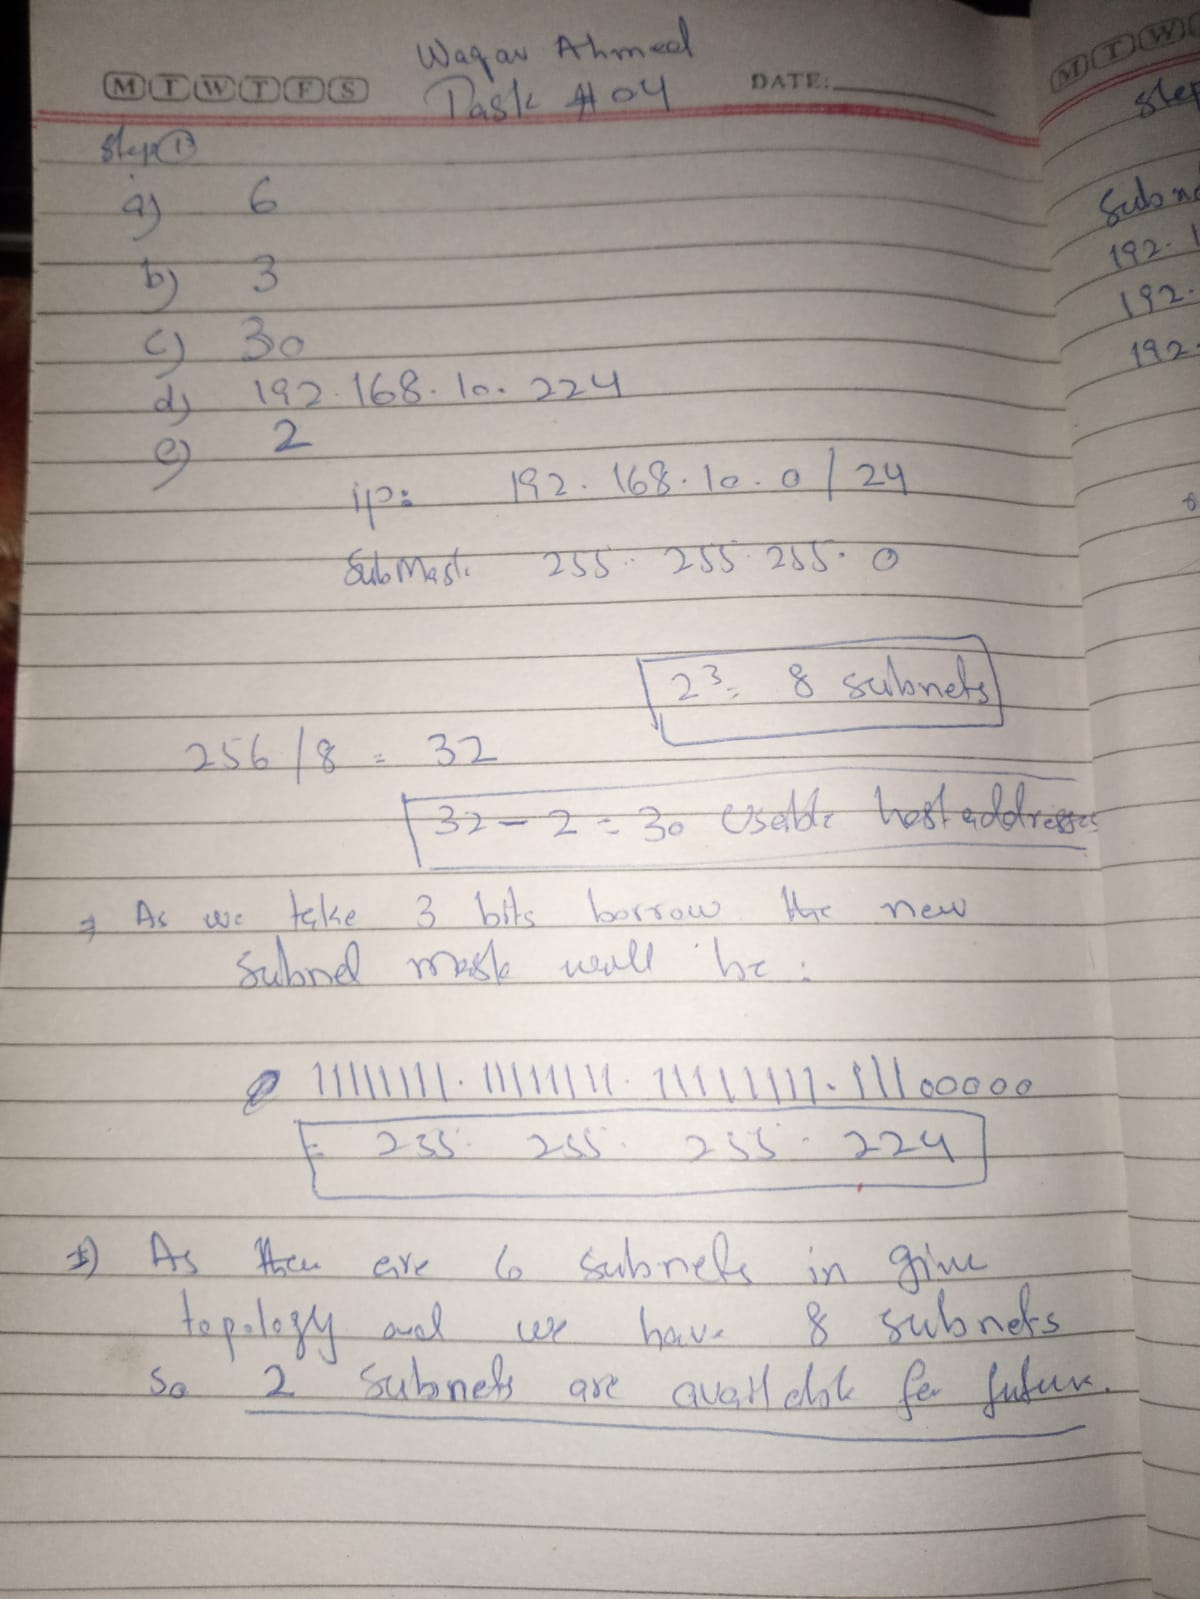 Waqar Ahmed
M T W T F S Task #04 DATE:
Step 1)
a) 6
b) 3
c) 30
d) 192.168.10.224
e) 2
ip: 192.168.10.0/24
SubMask 255.255.255.0
2³= 8 subnets
256/8 = 32
32-2=30 Useable host addresses
⇒ As we take 3 bits borrow the new
Subnet mask will be:
11111111.11111111.11111111.11100000
= 255.255.255.224
As there are 6 subnets in give
topology and we have 8 subnets
So 2 Subnets are available for future.
M T W
Step
Subne
192.1
192.
192.